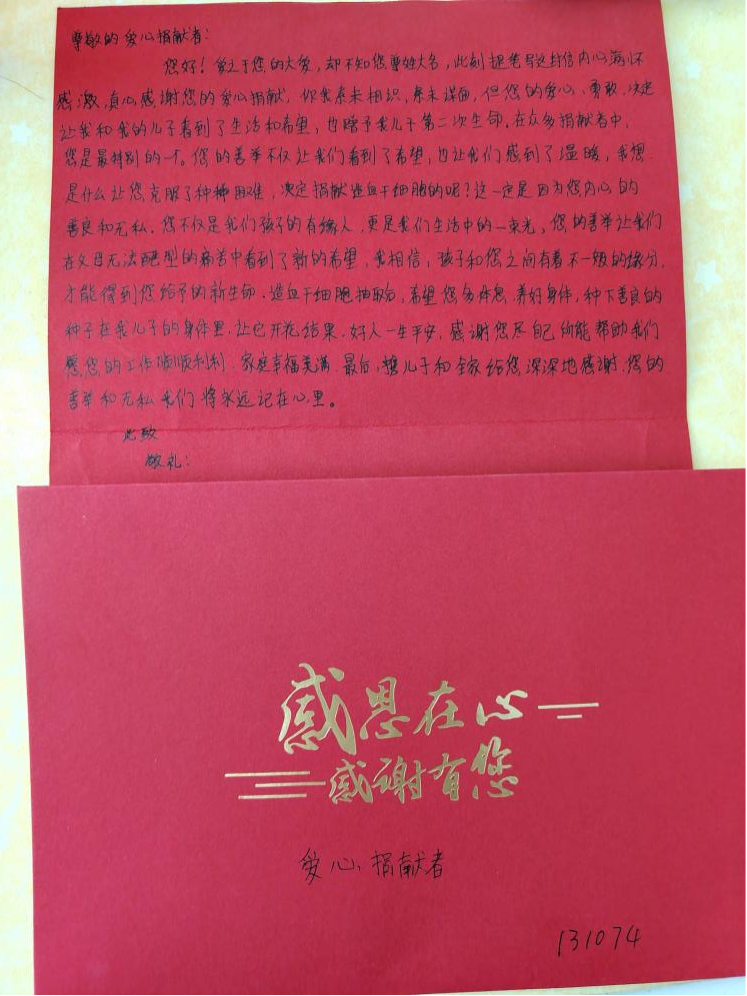 尊敬的爱心捐献者：
您好！受之于您的大爱，却不知您尊姓大名，此刻提笔写这封信内心满怀
感激，真心感谢您的爱心捐献，你我素未相识，素未谋面，但您的爱心、勇敢、决定
让我和我的儿子看到了生活和希望，也赠予我儿子第二次生命。在众多捐献者中，
您是最特别的一个。您的善举不仅让我们看到了希望，也让我们感到了温暖，我想
是什么让您克服了种种困难，决定捐献造血干细胞的呢？这一定是因为您内心的
善良和无私。您不仅是我们孩子的有缘人，更是我们生活中的一束光。您的善举让我们
在父母无法配型的痛苦中看到了新的希望，我相信，孩子和您之间有着不一般的缘分，
才能得到您给予的新生命。造血干细胞抽取后，希望您多休息，养好身体，种下善良的
种子在我儿子的身体里，让它开花结果。好人一生平安，感谢您尽自己所能帮助我们
愿您的工作顺顺利利，家庭幸福美满。最后，替儿子和全家给您深深地感谢，您的
善举和无私我们将永远记在心里。
此致
敬礼！
感恩在心
感谢有您
爱心捐献者
131074